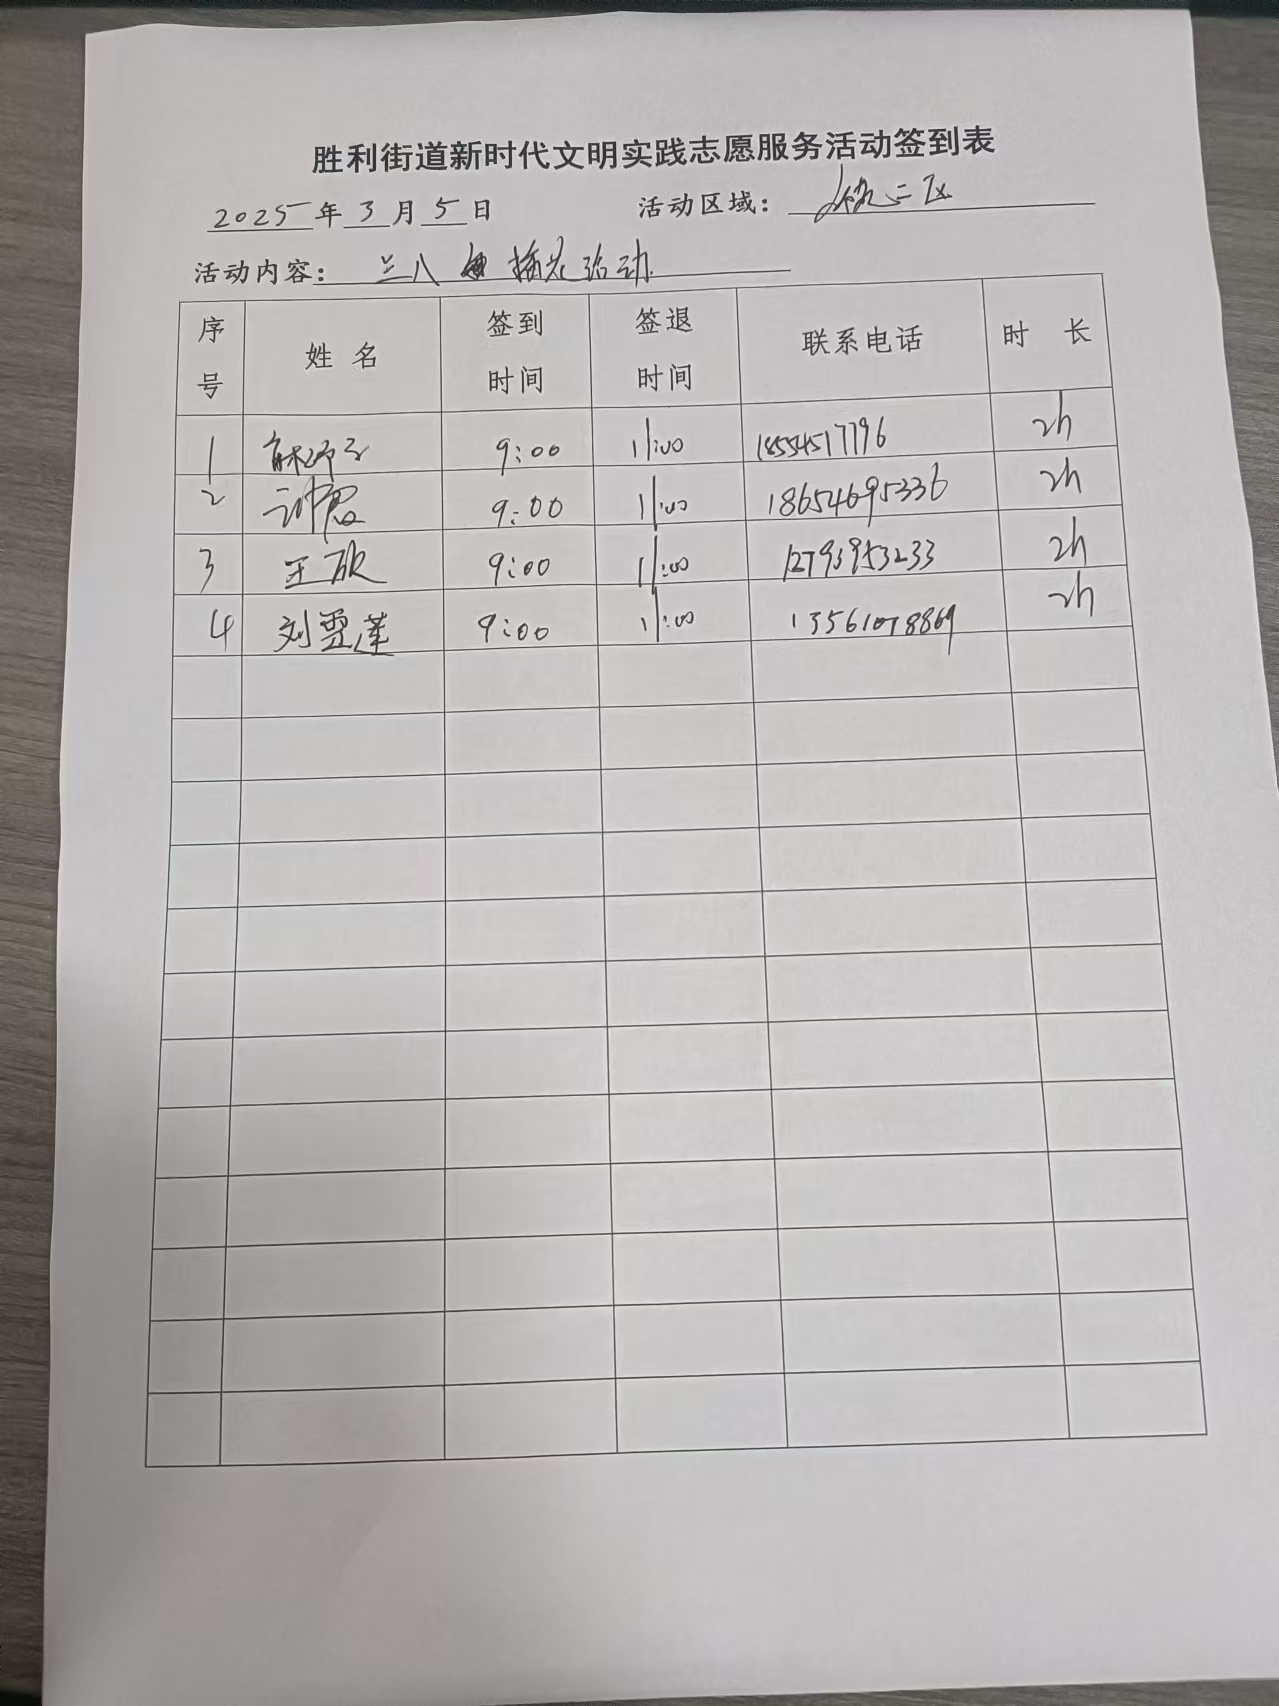 胜利街道新时代文明实践志愿服务活动签到表
2025年3月5日 活动区域：二区
活动内容：三八插花活动
序号 姓名 签到时间 签退时间 联系电话 时长
1 9:00 11:00 18554517796 2h
2 9:00 11:00 18654695336 2h
3 王欣 9:00 11:00 12793953233 2h
4 刘雪莲 9:00 11:00 13561078869 2h